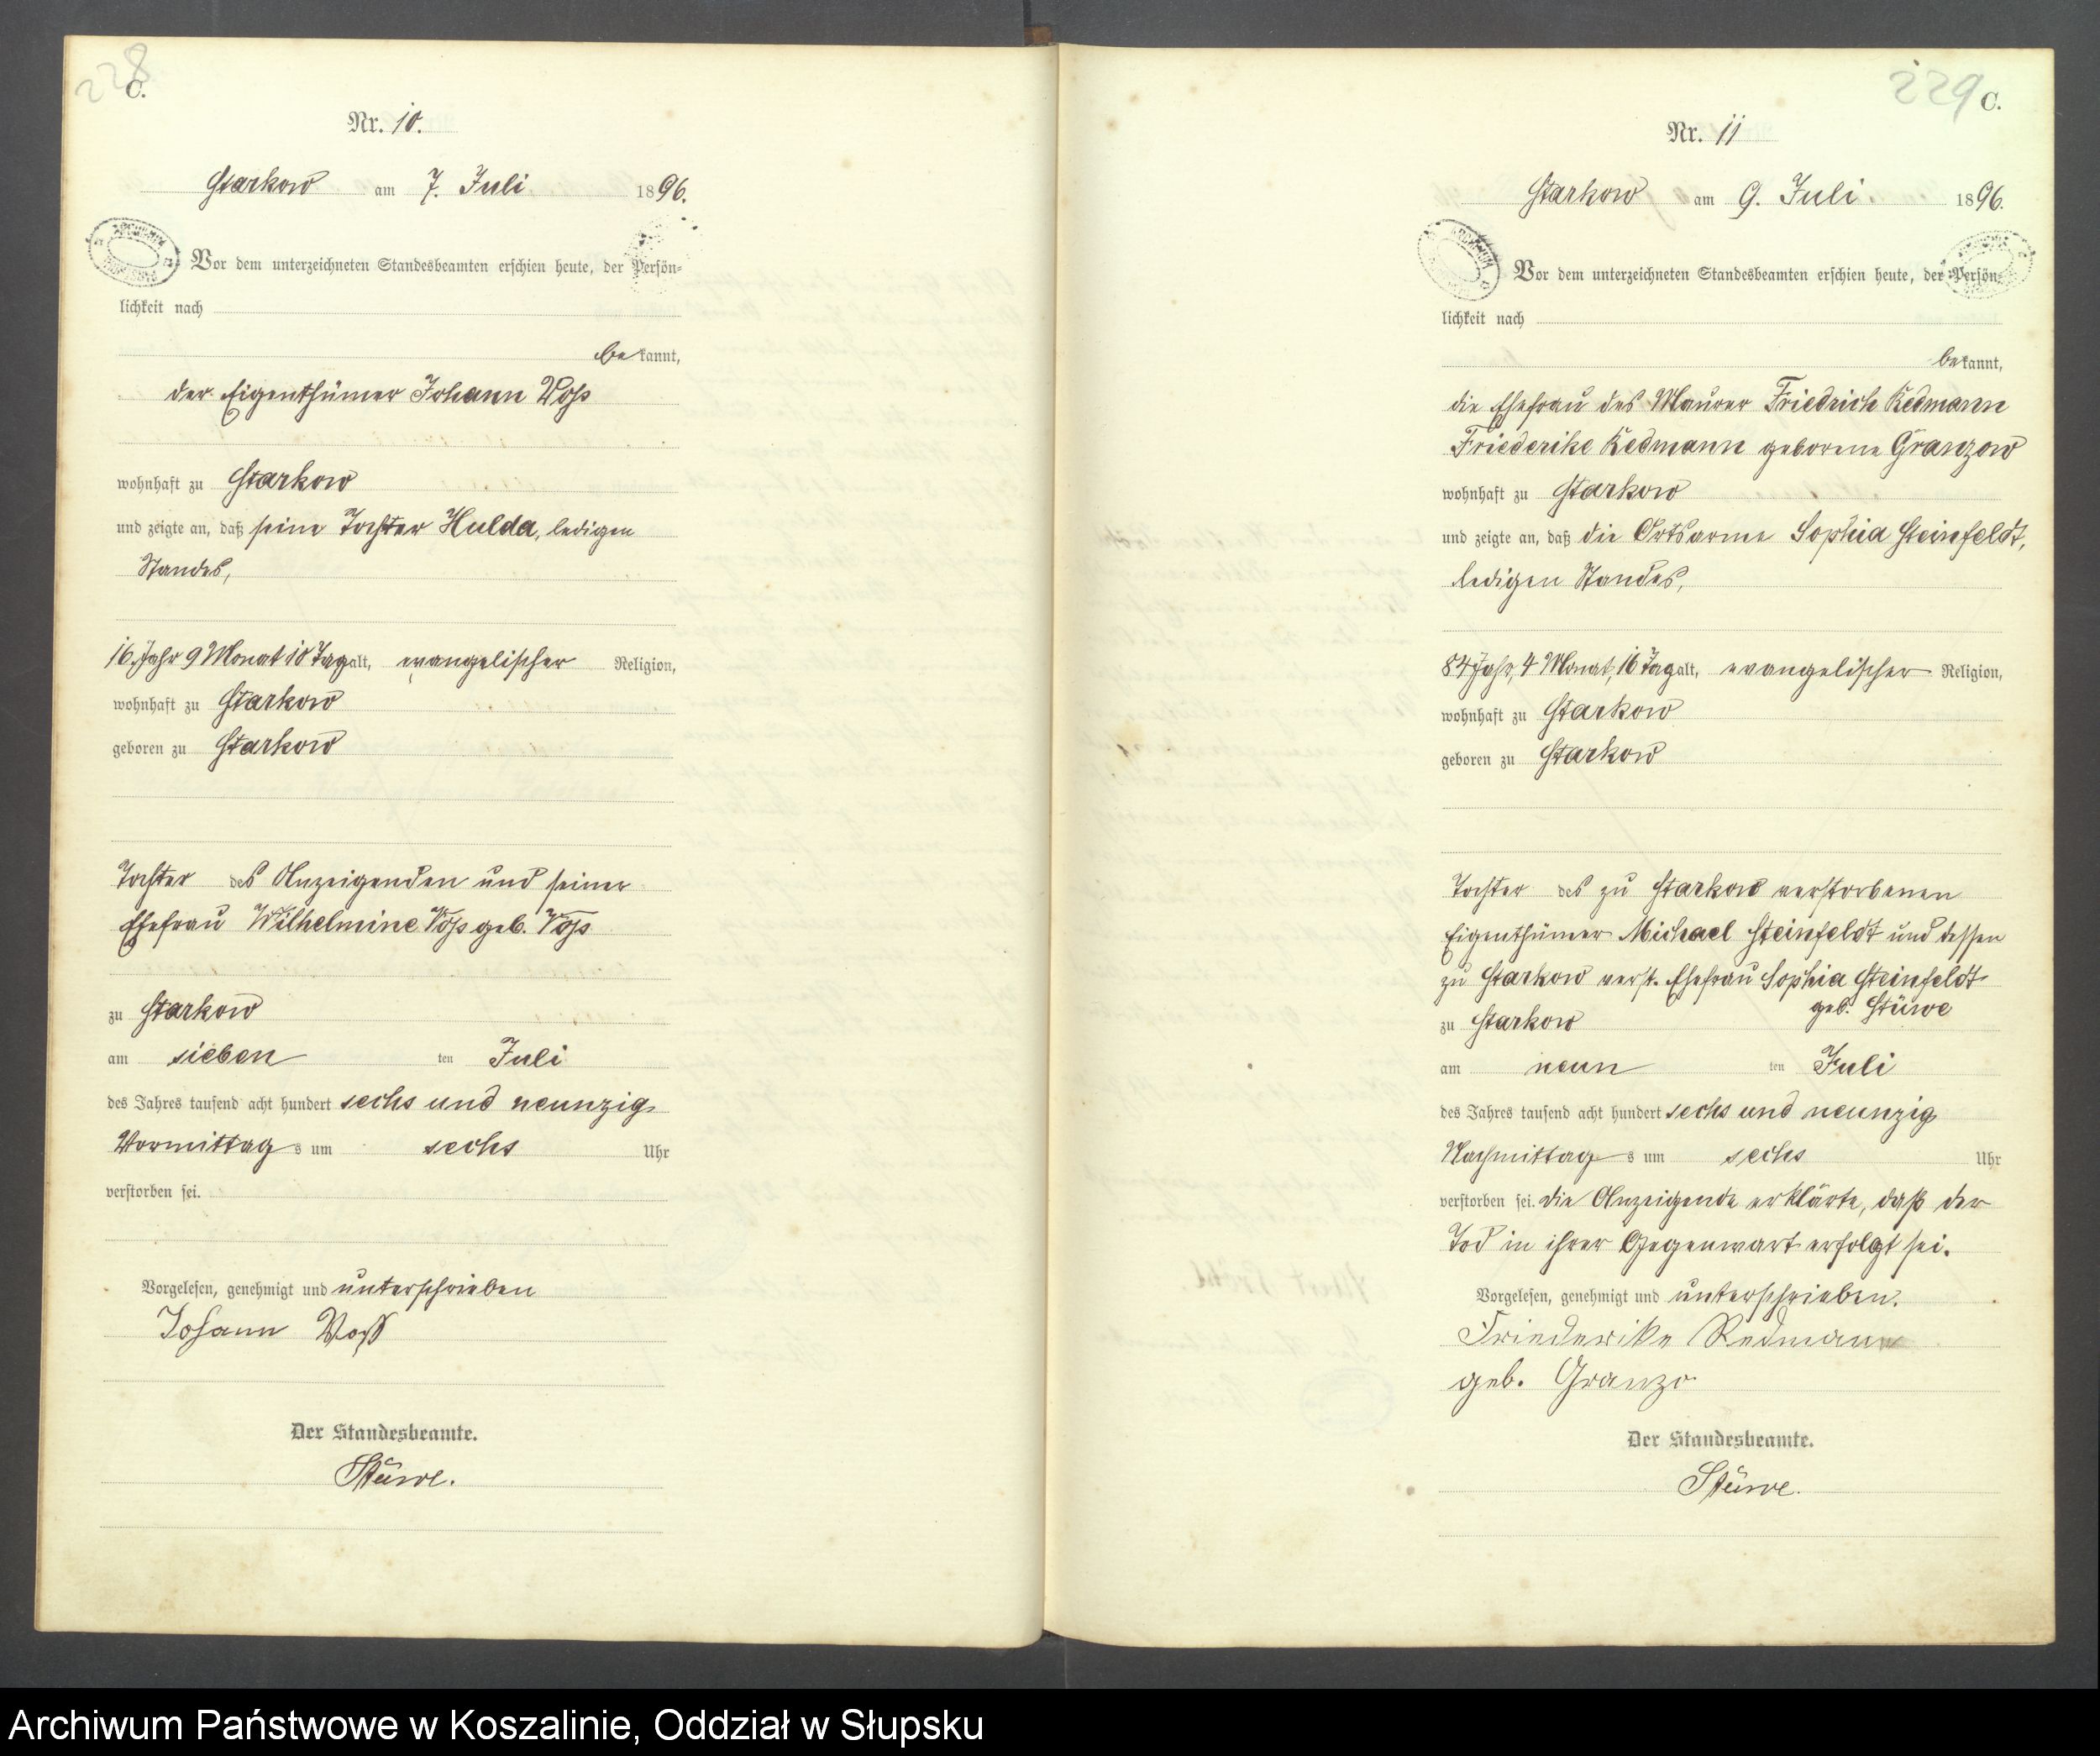 228
C.
Nr. 10.
Starkow am 7. Juli 1896.
Vor dem unterzeichneten Standesbeamten erschien heute, der Persön-
lichkeit nach
bekannt,
der Eigenthümer Johann Voß
wohnhaft zu Starkow
und zeigte an, daß seine Tochter Hulda, ledigen
Standes,
16 Jahr 9 Monat 10 Tag alt, evangelischer Religion,
wohnhaft zu Starkow
geboren zu Starkow
Tochter des Anzeigenden und seiner
Ehefrau Wilhelmine Voß geb. Voß
zu Starkow
am sieben ten Juli
des Jahres tausend acht hundert sechs und neunzig
Vormittags um sechs Uhr
verstorben sei.
Vorgelesen, genehmigt und unterschrieben
Johann Voß
Der Standesbeamte.
Stüwe.
229
C.
Nr. 11
Starkow am 9. Juli 1896.
Vor dem unterzeichneten Standesbeamten erschien heute, der Persön-
lichkeit nach
bekannt,
die Ehefrau des Maurer Friedrich Redmann
Friederike Redmann geborene Granzow
wohnhaft zu Starkow
und zeigte an, daß die Ortsarme Sophia Steinfeldt,
ledigen Standes,
84 Jahr, 4 Monat, 16 Tag alt, evangelischer Religion,
wohnhaft zu Starkow
geboren zu Starkow
Tochter des zu Starkow verstorbenen
Eigenthümer Michael Steinfeldt und dessen
zu Starkow verst. Ehefrau Sophia Steinfeldt
geb. Stüwe
zu Starkow
am neun ten Juli
des Jahres tausend acht hundert sechs und neunzig
Nachmittags um sechs Uhr
verstorben sei. Die Anzeigende erklärte, daß der
Tod in ihrer Gegenwart erfolgt sei.
Vorgelesen, genehmigt und unterschrieben.
Friederike Redmann
geb. Granzo
Der Standesbeamte.
Stüwe.
Archiwum Państwowe w Koszalinie, Oddział w Słupsku